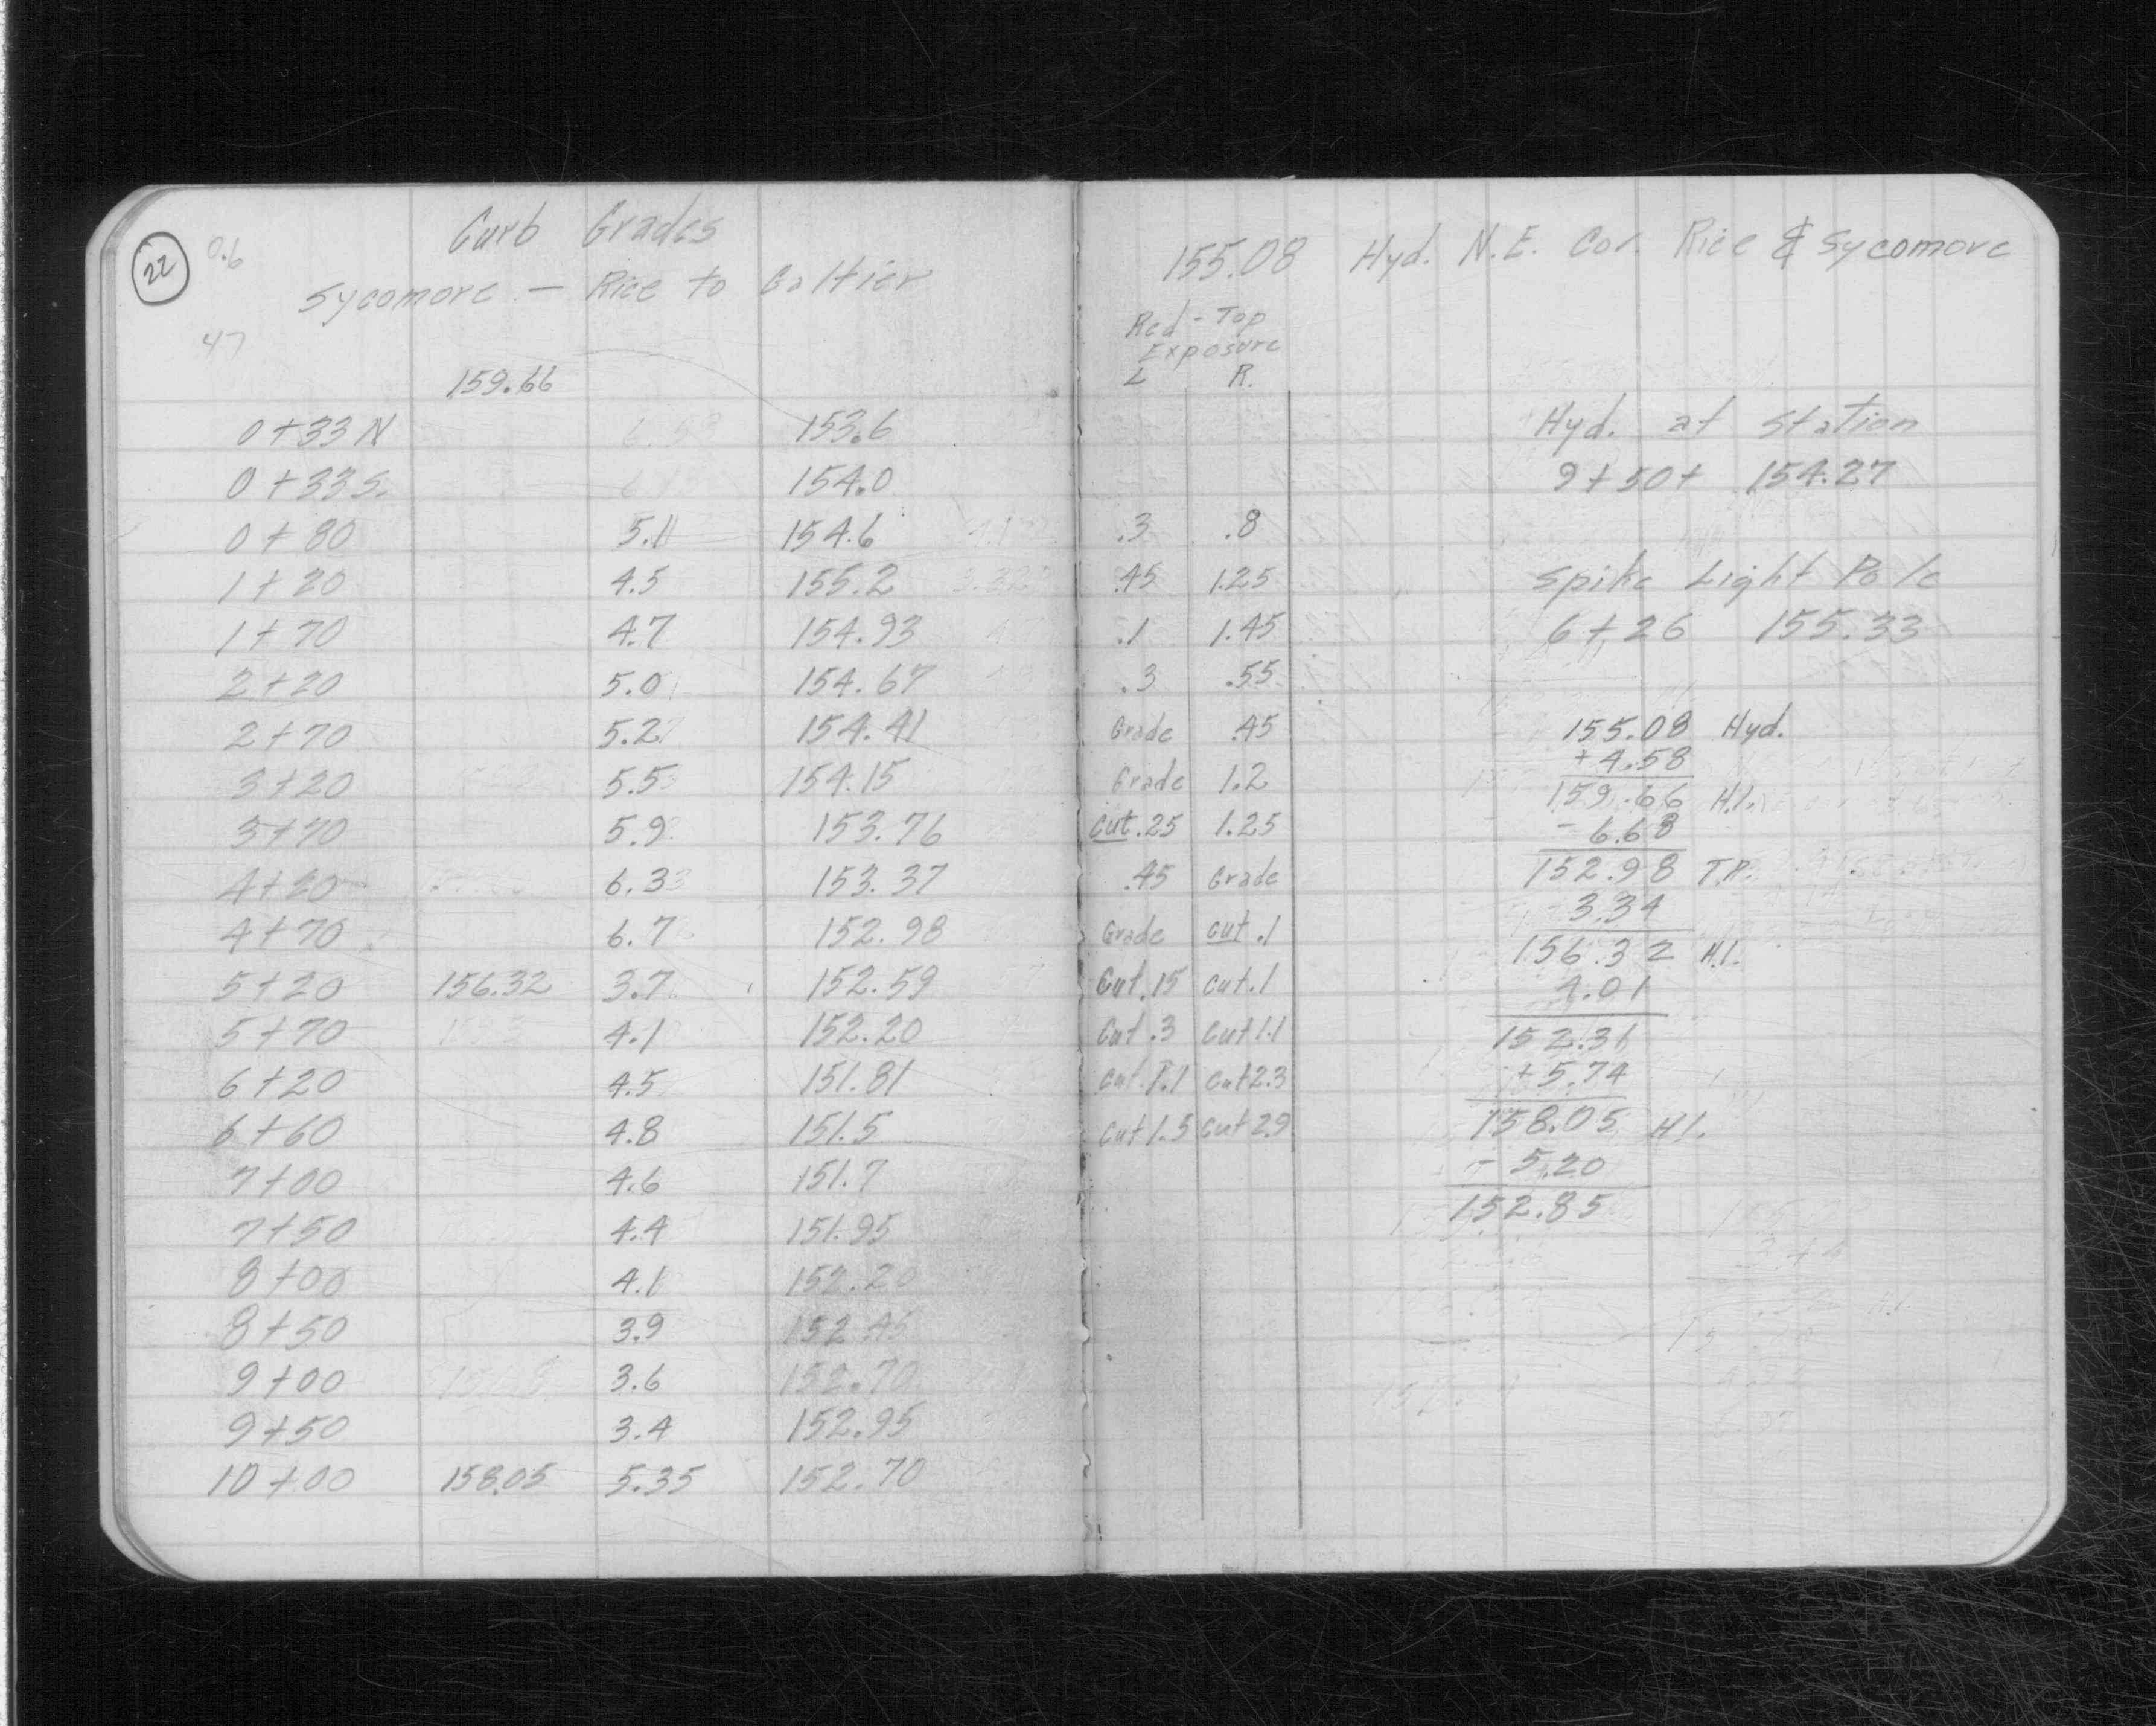 22 0.6
Curb Grades
Sycomore - Rice to Galtier
47
159.66
0+33 N 153.6
0+33 S. 154.0
0+80 5.1 154.6
1+20 4.5 155.2
1+70 4.7 154.93
2+20 5.0 154.67
2+70 5.2 154.41
3+20 5.5 154.15
3+70 5.9 153.76
4+20 6.3 153.37
4+70 6.7 152.98
5+20 156.32 3.7 152.59
5+70 4.1 152.20
6+20 4.5 151.81
6+60 4.8 151.5
7+00 4.6 151.7
7+50 4.4 151.95
8+00 4.1 152.20
8+50 3.9 152.45
9+00 3.6 152.70
9+50 3.4 152.95
10+00 158.05 5.35 152.70
155.08 Hyd. N.E. Cor. Rice & Sycomore
Red - Top
Exposure
L R.
.3 .8
.45 1.25
.1 1.45
.3 .55
Grade .45
Grade 1.2
Cut .25 1.25
.45 Grade
Grade Cut .1
Cut .15 Cut .1
Cut .3 Cut 1.1
Cut 1.1 Cut 2.3
Cut 1.5 Cut 2.9
Hyd. at Station
9+50+ 154.27
Spike Light Pole
6+26 155.33
155.08 Hyd.
+4.58
159.66 H.I.
- 6.68
152.98 T.P.
3.34
156.32 H.I.
4.01
152.31
+5.74
158.05 H.I.
- 5.20
152.85